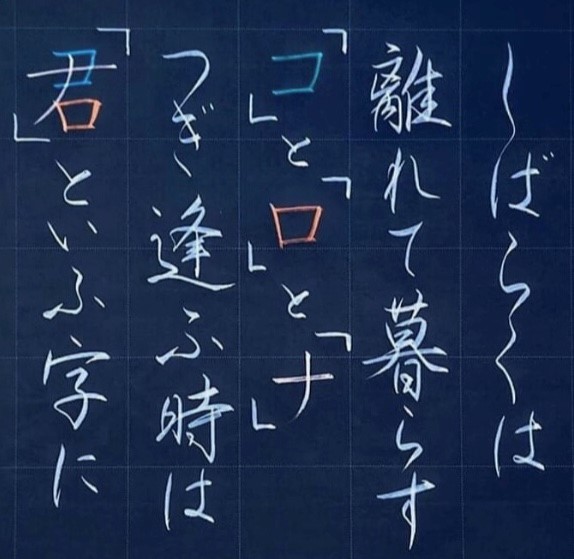 しばらくは
離れて暮らす
「コ」と「ロ」と「ナ」
つぎ逢ふ時は
「君」といふ字に